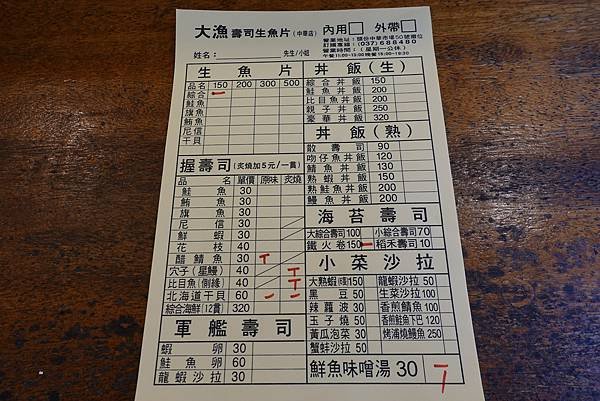 大漁 壽司生魚片 (中華店) 內用□ 外帶□
營業地址：頭份中華市場50號攤位
訂購專線：(037)688480
營業時間：(星期一公休)
午餐11:00-13:00晚餐16:00-19:30
姓名： 先生/小姐
生魚片
品名 150 200 300 500
綜合
鮭魚
旗魚
鮪魚
尼信
干貝
握壽司 (炙燒加5元/一貫)
品名 單價 原味 炙燒
鮭魚 30
鮪魚 30
旗魚 30
尼信 30
鮮蝦 30
花枝 40
醋鯖魚 30
穴子(星鰻) 40
比目魚(側緣) 40
北海道干貝 60
綜合海鮮(12貫) 320
軍艦壽司
蝦卵 30
鮭魚卵 60
龍蝦沙拉 30
丼飯(生)
綜合丼飯 150
鮭魚丼飯 200
比目魚丼飯 200
親子丼飯 250
豪華丼飯 320
丼飯(熟)
散壽司 90
吻仔魚丼飯 120
鯖魚丼飯 130
熟蝦丼飯 150
熟鮭魚丼飯 200
鰻魚丼飯 200
海苔壽司
大綜合壽司 100 小綜合壽司 70
鐵火卷 150 稻禾壽司 10
小菜沙拉
大熟蝦 150 龍蝦沙拉 50
黑豆 50 生菜沙拉 100
辣蘿波 30 香煎鯖魚 100
玉子燒 50 香煎鮭魚下巴 120
黃瓜泡菜 30 烤浦燒鰻魚 250
蟹蚌沙拉 50
鮮魚味噌湯 30